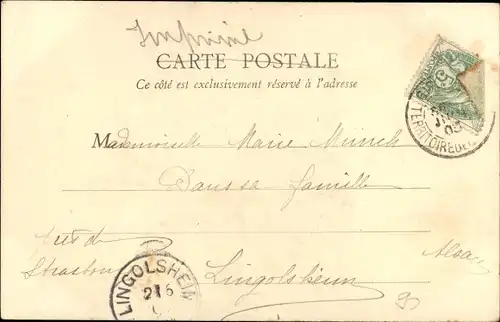 Imprimé
CARTE POSTALE
Ce côté est exclusivement réservé à l'adresse
5
TERRITOIRE DE
Mademoiselle Marie Münch
Dans sa famille
près de
Strasbourg
Lingolsheim
Alsace
LINGOLSHEIM
21 6